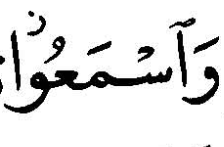 وَٱسْمَعُوا